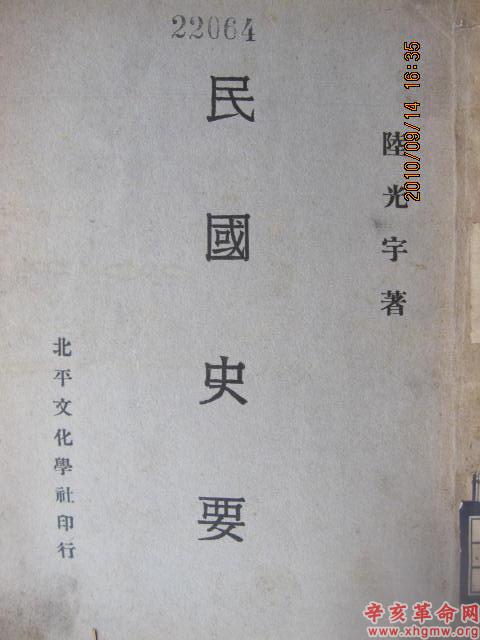 22064
陸光宇著
民國史要
北平文化學社印行
2010/09/14 16:35
辛亥革命网
www.xhgmw.org